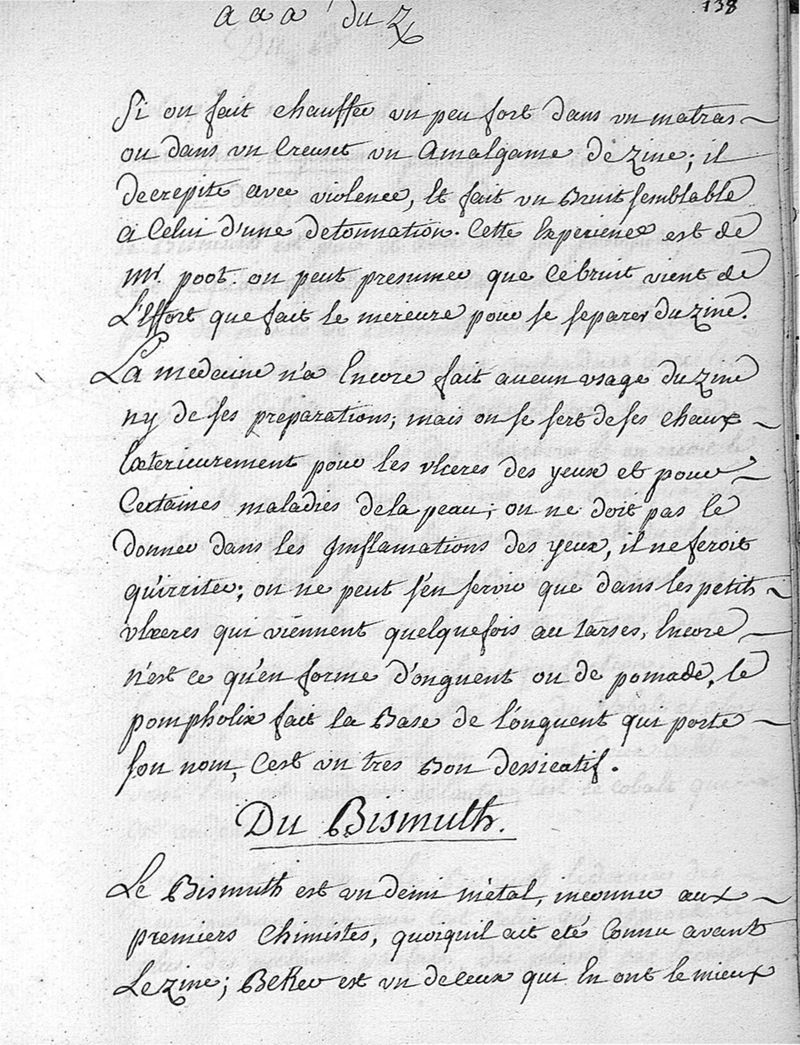 a a a du Z
138
Si on fait chauffer un peu fort dans un matras
ou dans un Creuset un Amalgame de zinc; il
decrepite avec violence, Et fait un Bruit semblable
a Celui d'une detonnation. Cette Experience est de
Mr. poot. on peut presumer que Ce bruit vient de
L'Effort que fait le mercure pour se separer du zinc.
La medecine n'a Encore fait aucun usage du zinc
ny de ses preparations; mais on se sert de ses chaux
Exterieurement pour les ulceres des yeux et pour
Certaines maladies de la peau; on ne doit pas le
donner dans les Inflamations des yeux, il ne feroit
qu'irriter; on ne peut s'en servir que dans les petits
ulceres qui viennent quelquefois au tarses, Encore
n'est ce qu'en forme d'onguent ou de pomade, le
pompholix fait la Base de l'onguent qui porte
son nom, C'est un tres Bon dessicatif.
Du Bismuth.
Le Bismuth est un demi métal, inconnu aux
premiers Chimistes, quoiquil ait eté Connu avant
Le zinc; Beker est un de Ceux qui En ont le mieux